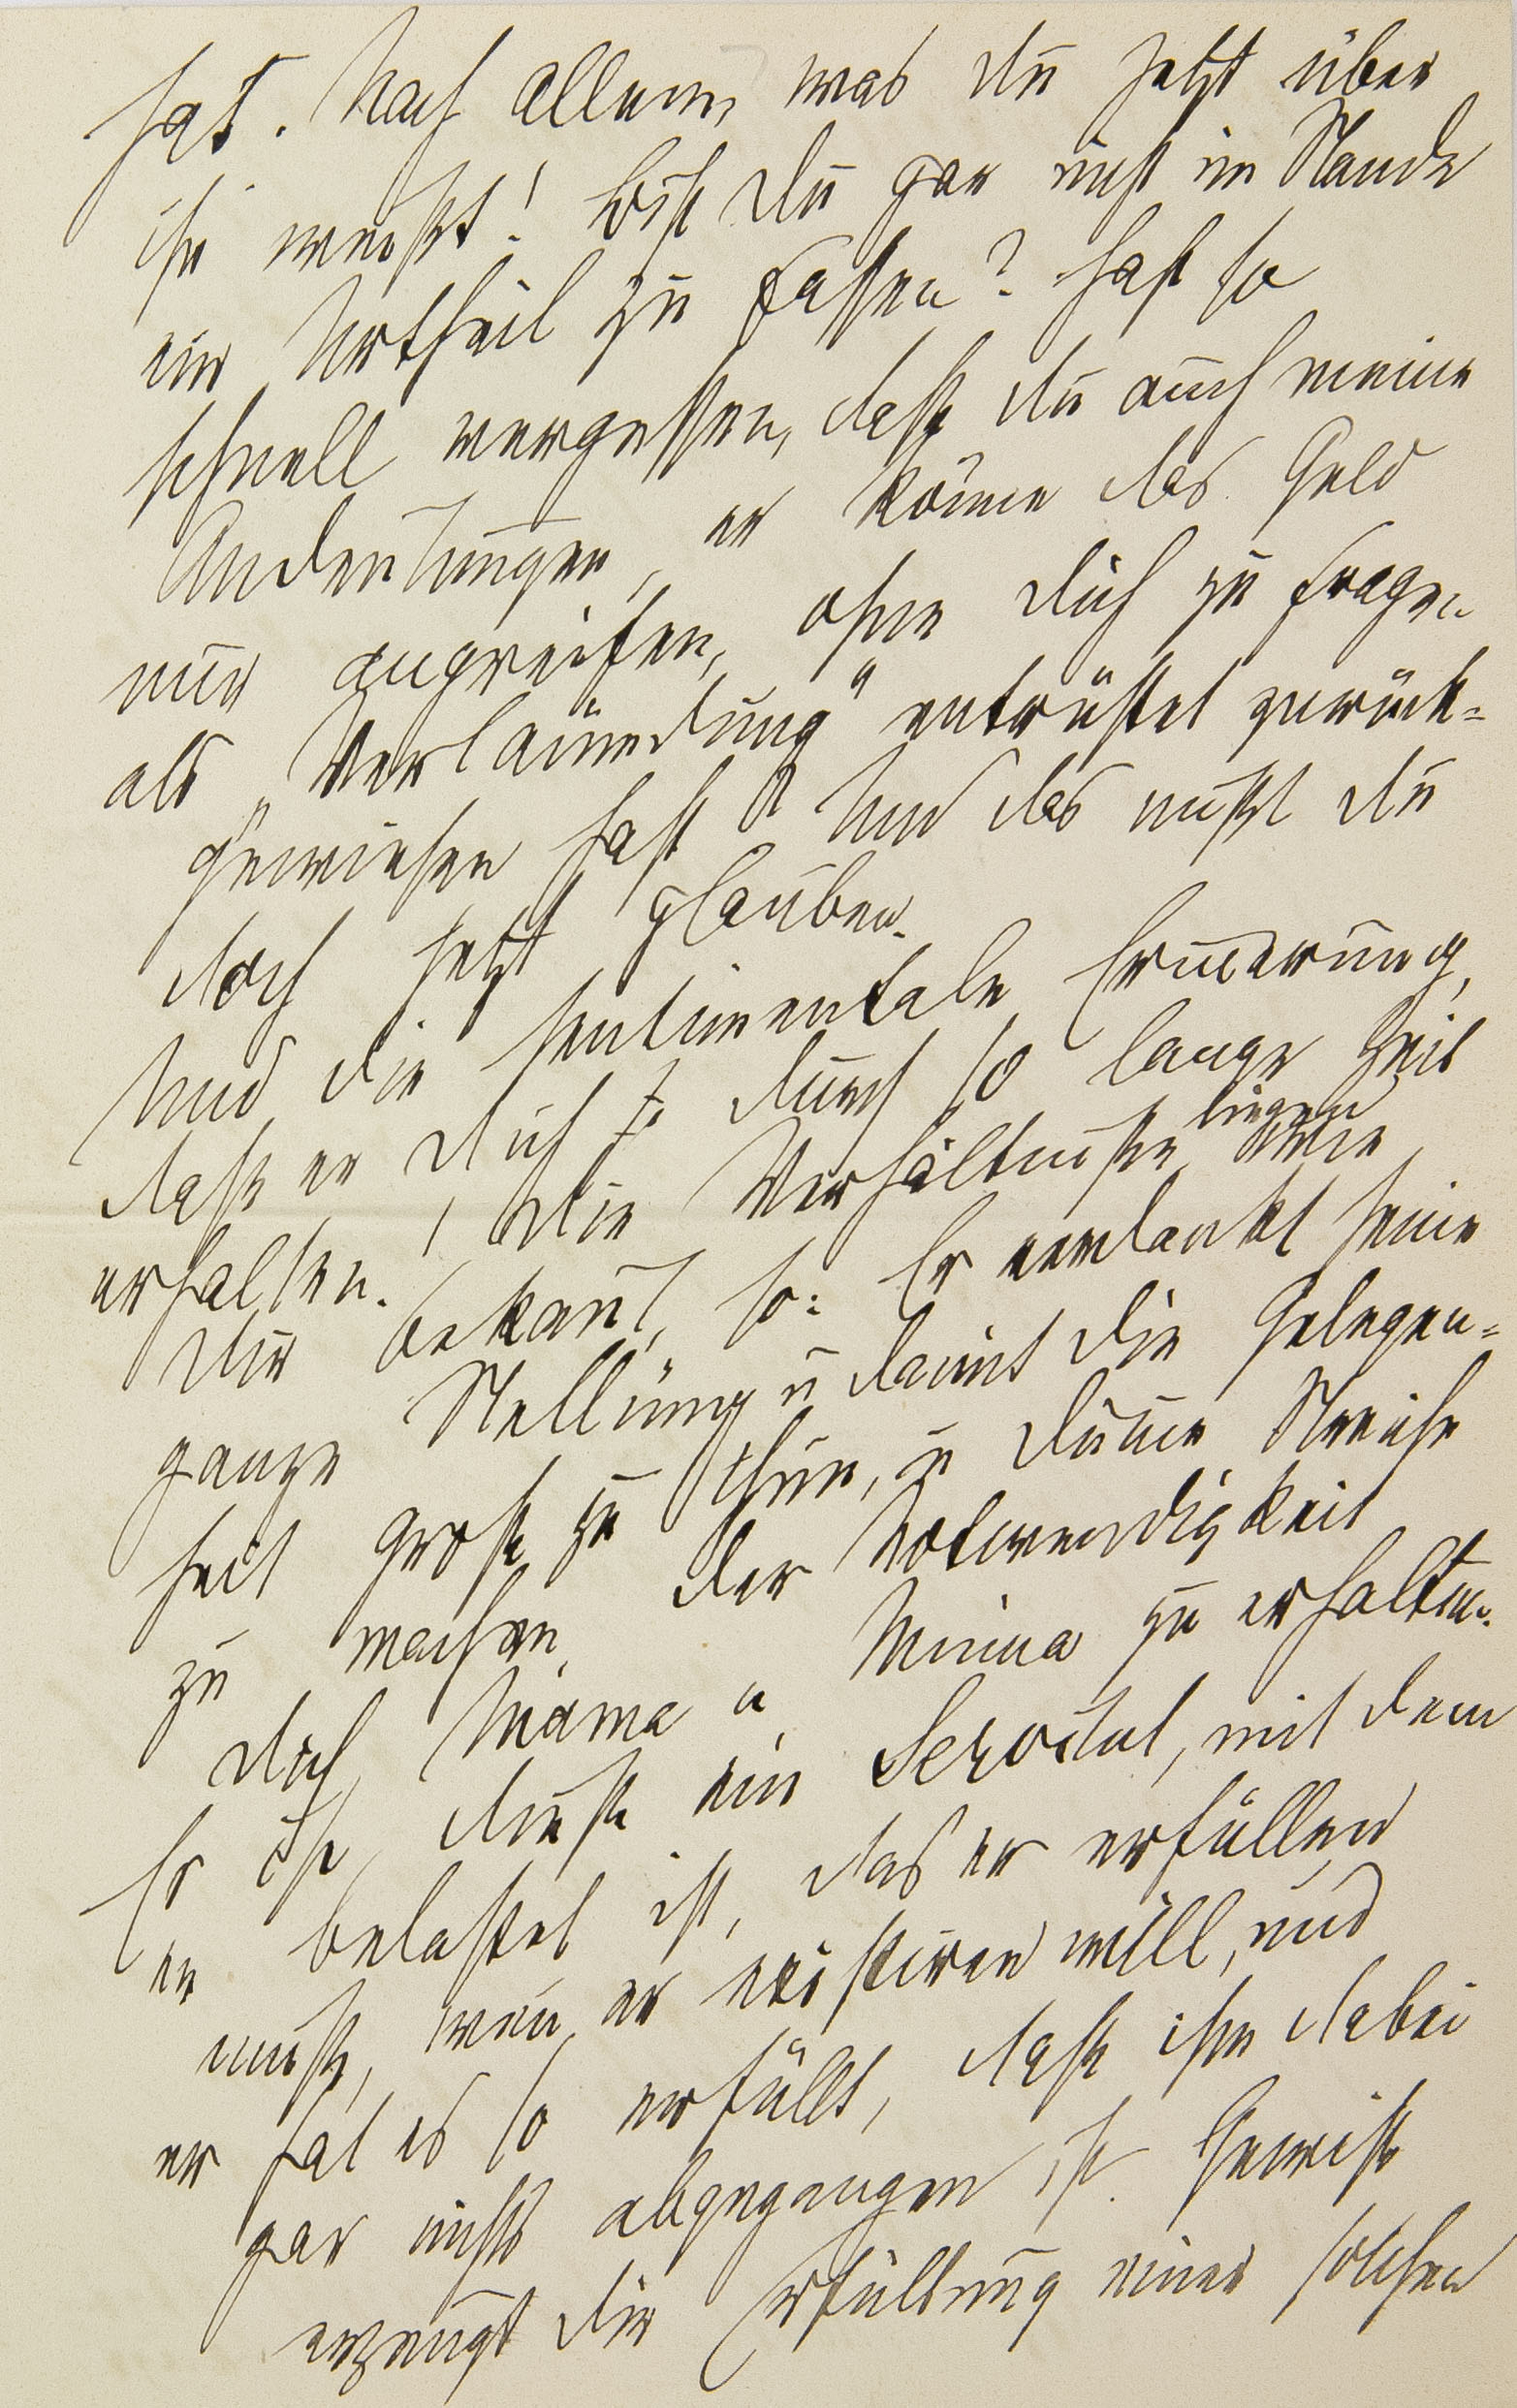 hat. Nach allem, was du jetzt über
ihn weißt! Bist du gar nicht im Stande
ein Urtheil zu fassen? Hast so
schnell vergessen, daß du auch meine
Andeutungen, er könne das Geld
nur angreifen, ohne dich zu fragen
als „Verläumdung" entrüstet zurück=
gewiesen hast? Und das mußt du
doch jetzt glauben.
Und die sentimentale Erinerung,
daß er dich durch so lange Zeit
erhalten! Die Verhältniße liegen wie
dir bekant, so: Er verdankt seine
ganze Stellung u damit die Gelegen=
heit groß zu thun, u dumme Streiche
zu machen, der Notwendigkeit
dich, Mama u Minna zu erhalten.
Es ist dieß ein Servitut, mit dem
er belastet ist, das er erfüllen
muß, wen er existiren will, und
er hat es so erfüllt, daß ihm dabei
gar nichts abgegangen ist. Gewiß
erzeugt die Erfüllung einer solchen